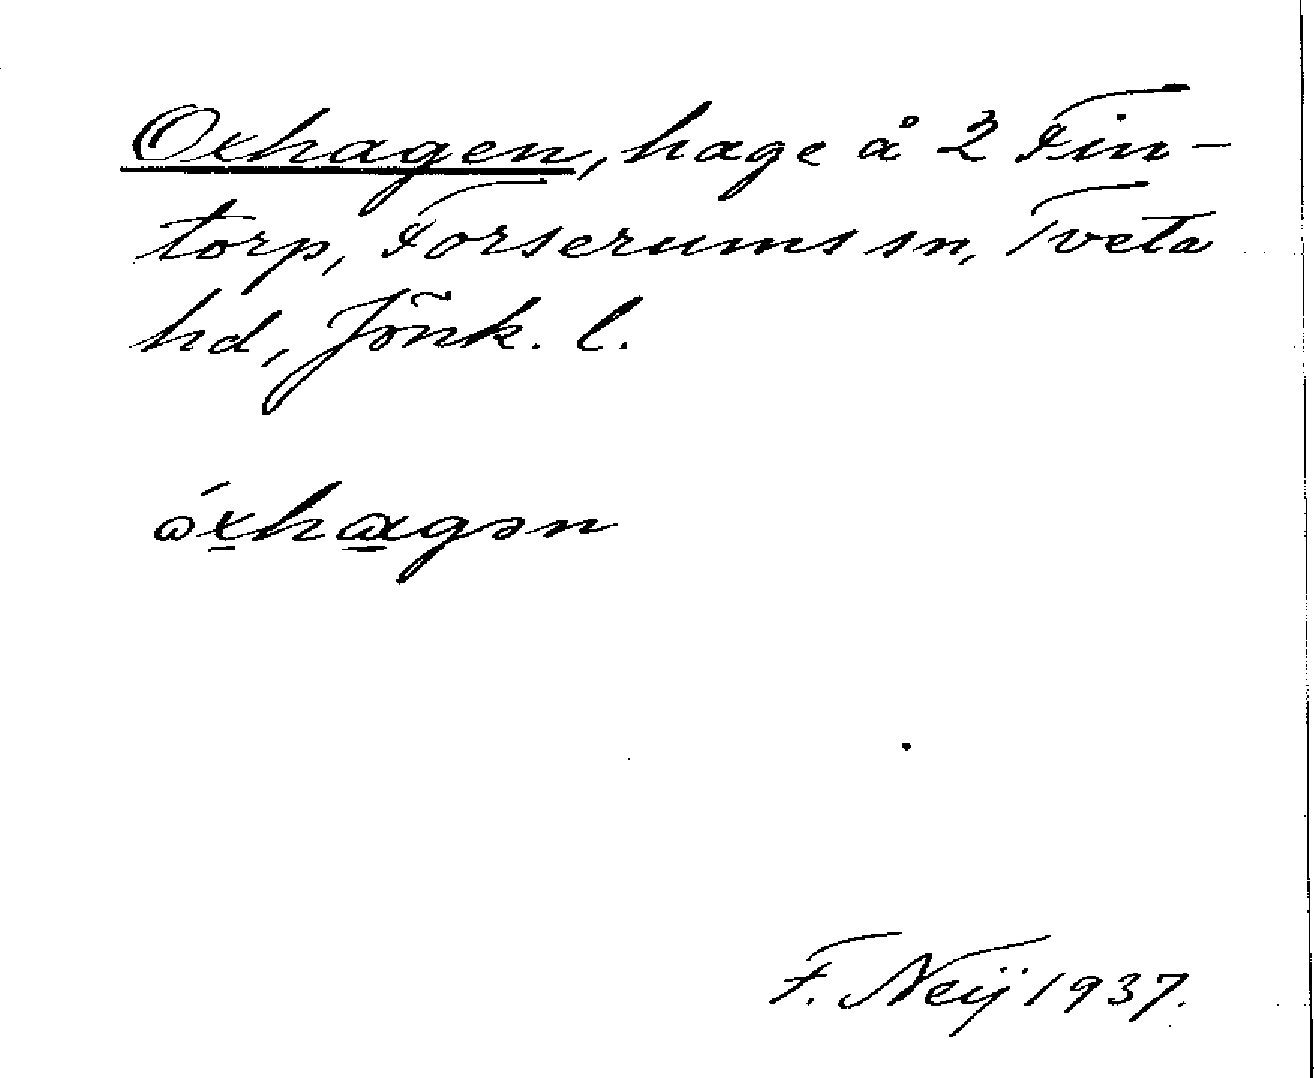 Oxhagen, hage å 2 Fin-
torp, Forserums sn, Tveta
hd, Jönk. l.
óxhagən
F. Neij 1937.